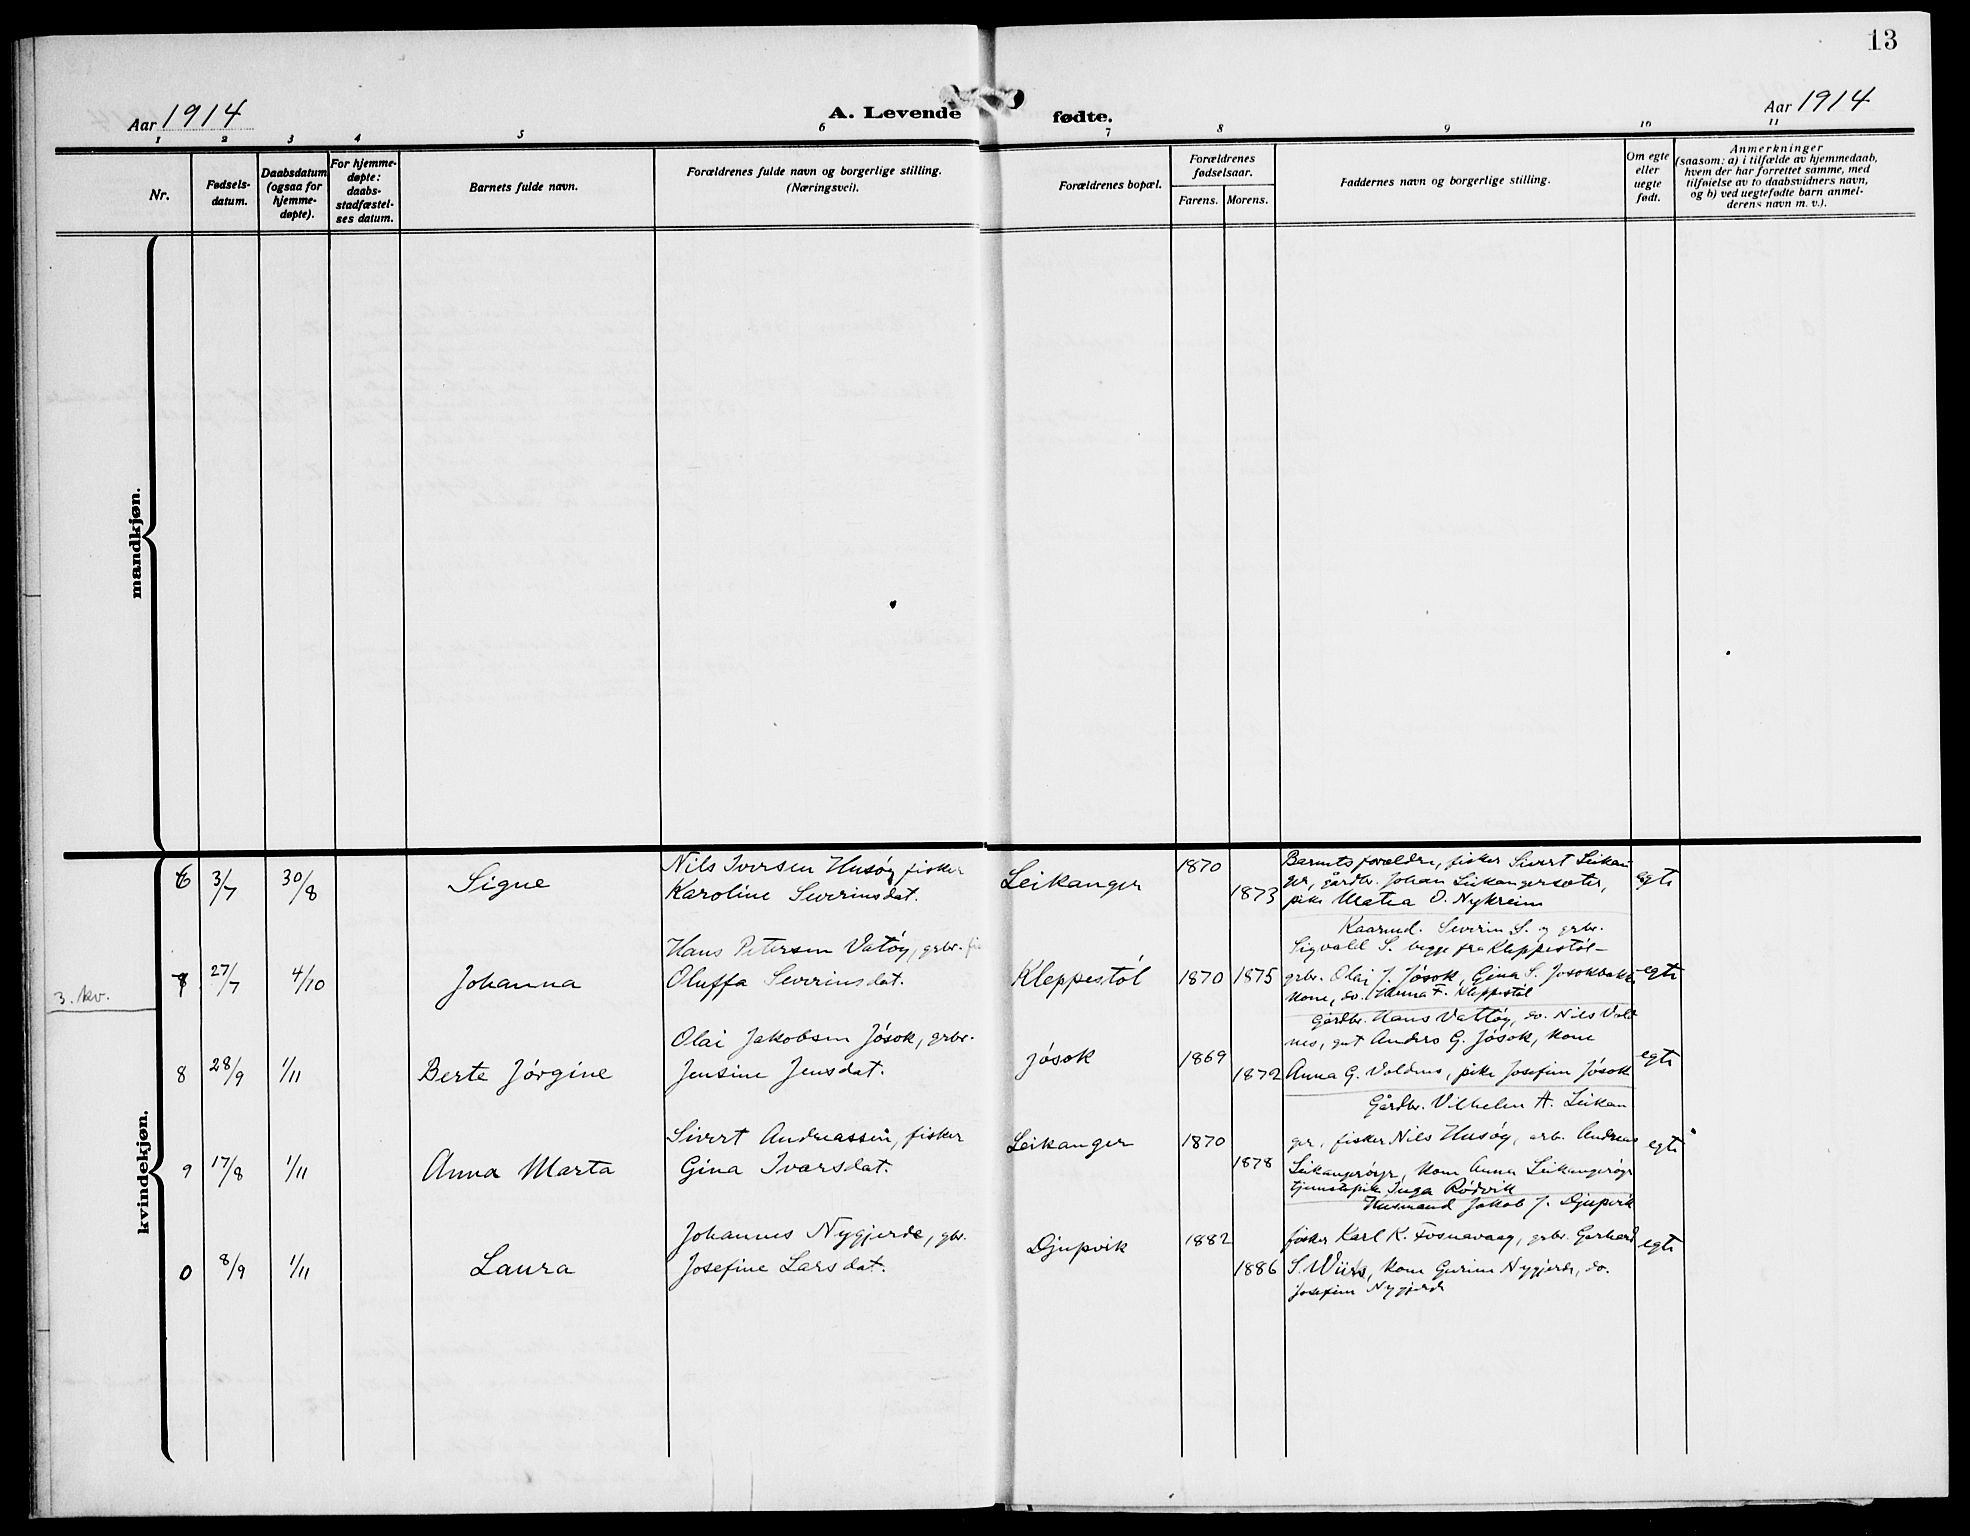 13
Aar 1914
A. Levende fødte.
Aar 1914
1 2 3 4 5 6 7 8 9 10 11
Nr.
Fødsels-
datum.
Daabsdatum
(ogsaa for
hjemme-
døpte).
For hjemme-
døpte:
daabs-
stadfæstel-
ses datum.
Barnets fulde navn.
Forældrenes fulde navn og borgerlige stilling.
(Næringsvei).
Forældrenes bopæl.
Forældrenes
fødselsaar.
Farens. Morens.
Faddernes navn og borgerlige stilling.
Om egte
eller
uegte
født.
Anmerkninger
(saasom: a) i tilfælde av hjemmedaab,
hvem der har forrettet samme, med
tilføielse av to daabsvidners navn,
og b) ved uegtefødte barn anmel-
derens navn m. v.).
mandkjøn.
kvindekjøn.
3. kv.
6 3/7 30/8
Signe
Nils Iversen Husøy fisker
Karoline Severinsdat.
Leikanger
1870
1873
Barnets forældre, fisker Sivert Leikan
ger, gårdbr. Johan Leikangersæter,
pike Matea O. Nykreim
egte
7 27/7 4/10
Johanna
Hans Petersen Vatøy, grbr.
Oluffa Severinsdat.
Kleppestøl
1870 1875
Kaarmd. Severin S. og grbr.
Sigvald S. begge fra Kleppestøl
grbr. Olai J. Jøsok, Gina S. Jøsokbakke
kone, do. Anna F. Kleppestøl
egte
8 28/9 1/11
Berte Jørgine
Olai Jakobsen Jøsok, grbr.
Jensine Jensdat.
Jøsok
1869
1872
Gårdbr. Hans Vattøy, do. Nils Vold
nes, gut Anders G. Jøsok, kone
Anna G. Voldnes, pike Josefine Jøsok
egte
9 17/8 1/11
Anna Marta
Sivert Andreassen, fisker
Gina Ivarsdat.
Leikanger
1870
1878
Gårdbr. Vilhelm A. Leikan
ger, fisker Nils Husøy, arb. Andreas
Leikangerøyr, kone Anna Leikangerøyr
tjenestepik Inga Rødvik
egte
0 8/9 1/11
Laura
Johannes Nygjerde, gbr.
Josefine Larsdat.
Djupvik
1882
1886
Husmand Jakob J. Djupvik
fisker Karl K. Fosnavaag, grbr. Gerhard
S. Wiik, kone Gurine Nygjerde, do.
Josefine Nygjerde
egte